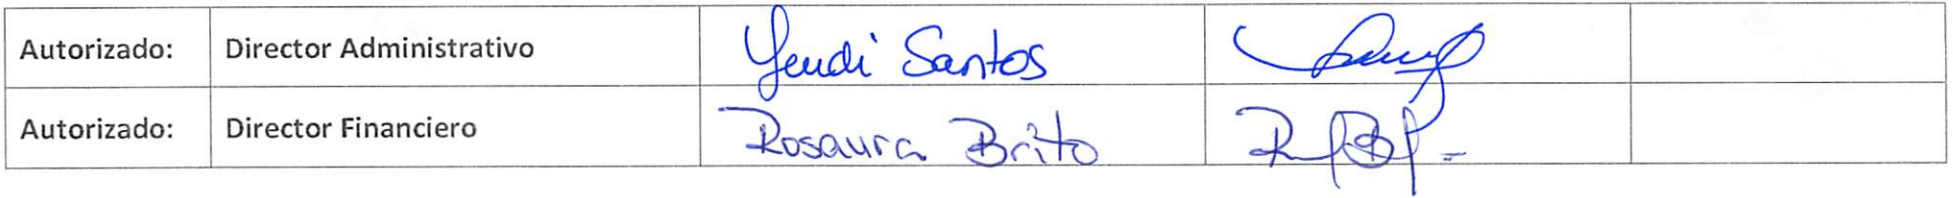 Autorizado: Director Administrativo Yendi Santos
Autorizado: Director Financiero Rosaura Brito